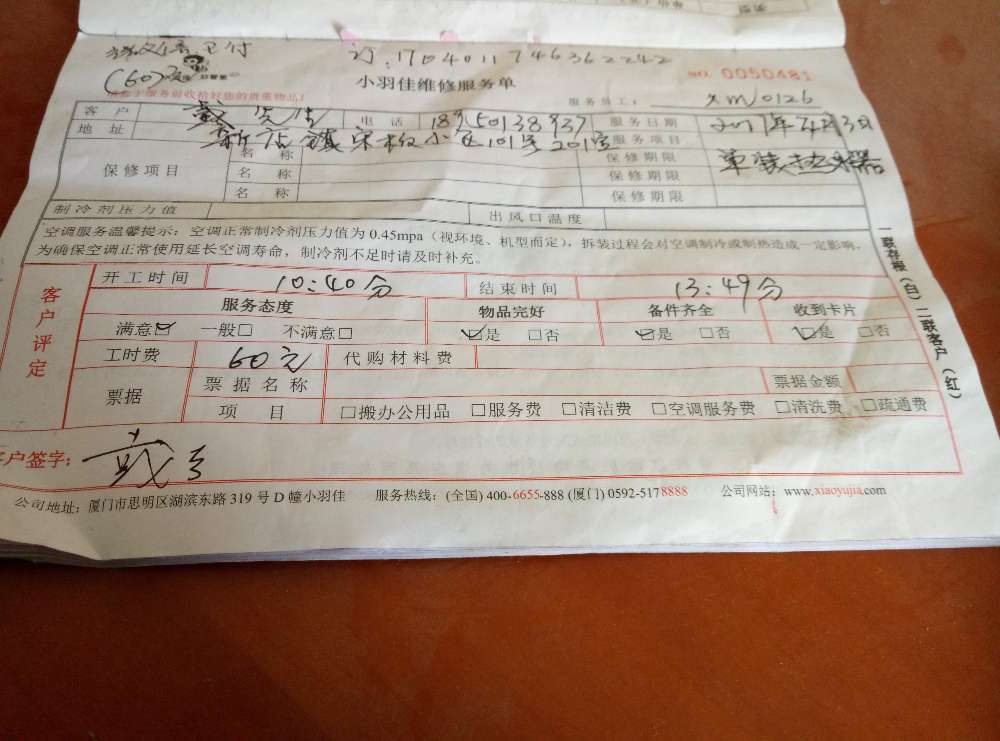 微信已付
(60)元
订:1704011746362242
小羽佳维修服务单
NO. 0050481
服务员工: xm0126
客户 戴先生 电话 服务日期 2017年4月3日
地址 小区101号201室 服务项目 单装热水器
保修项目 名称 保修期限
名称 保修期限
名称 保修期限
制冷剂压力值 出风口温度
空调服务温馨提示:空调正常制冷剂压力值为 0.45mpa(视环境、机型而定),拆装过程会对空调制冷或制热造成一定影响,
为确保空调正常使用延长空调寿命,制冷剂不足时请及时补充。
客户评定
开工时间 10:40分 结束时间 13:49分
服务态度 物品完好 备件齐全 收到卡片
满意☑ 一般□ 不满意□ ☑是 □否 ☑是 □否 ☑是 □否
工时费 60元 代购材料费
票据 票据名称 票据金额
项目 □搬办公用品 □服务费 □清洁费 □空调服务费 □清洗费 □疏通费
客户签字: 戴
一联存根(白)二联客户(红)
公司地址:厦门市思明区湖滨东路 319 号 D 幢小羽佳 服务热线:(全国) 400-6655-888 (厦门) 0592-5178888 公司网站:www.xiaoyujia.com